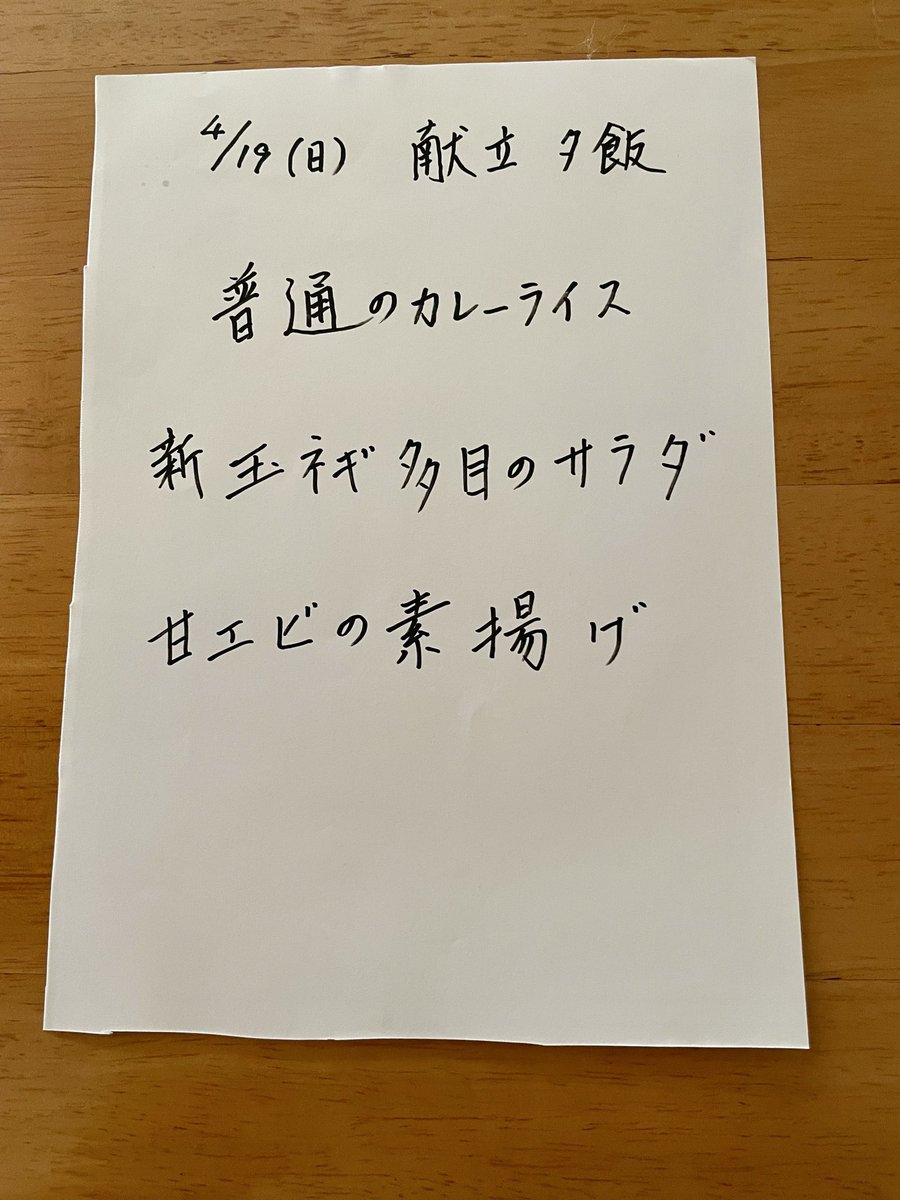 4/19(日) 献立 夕飯
普通のカレーライス
新玉ネギ多目のサラダ
甘エビの素揚げ